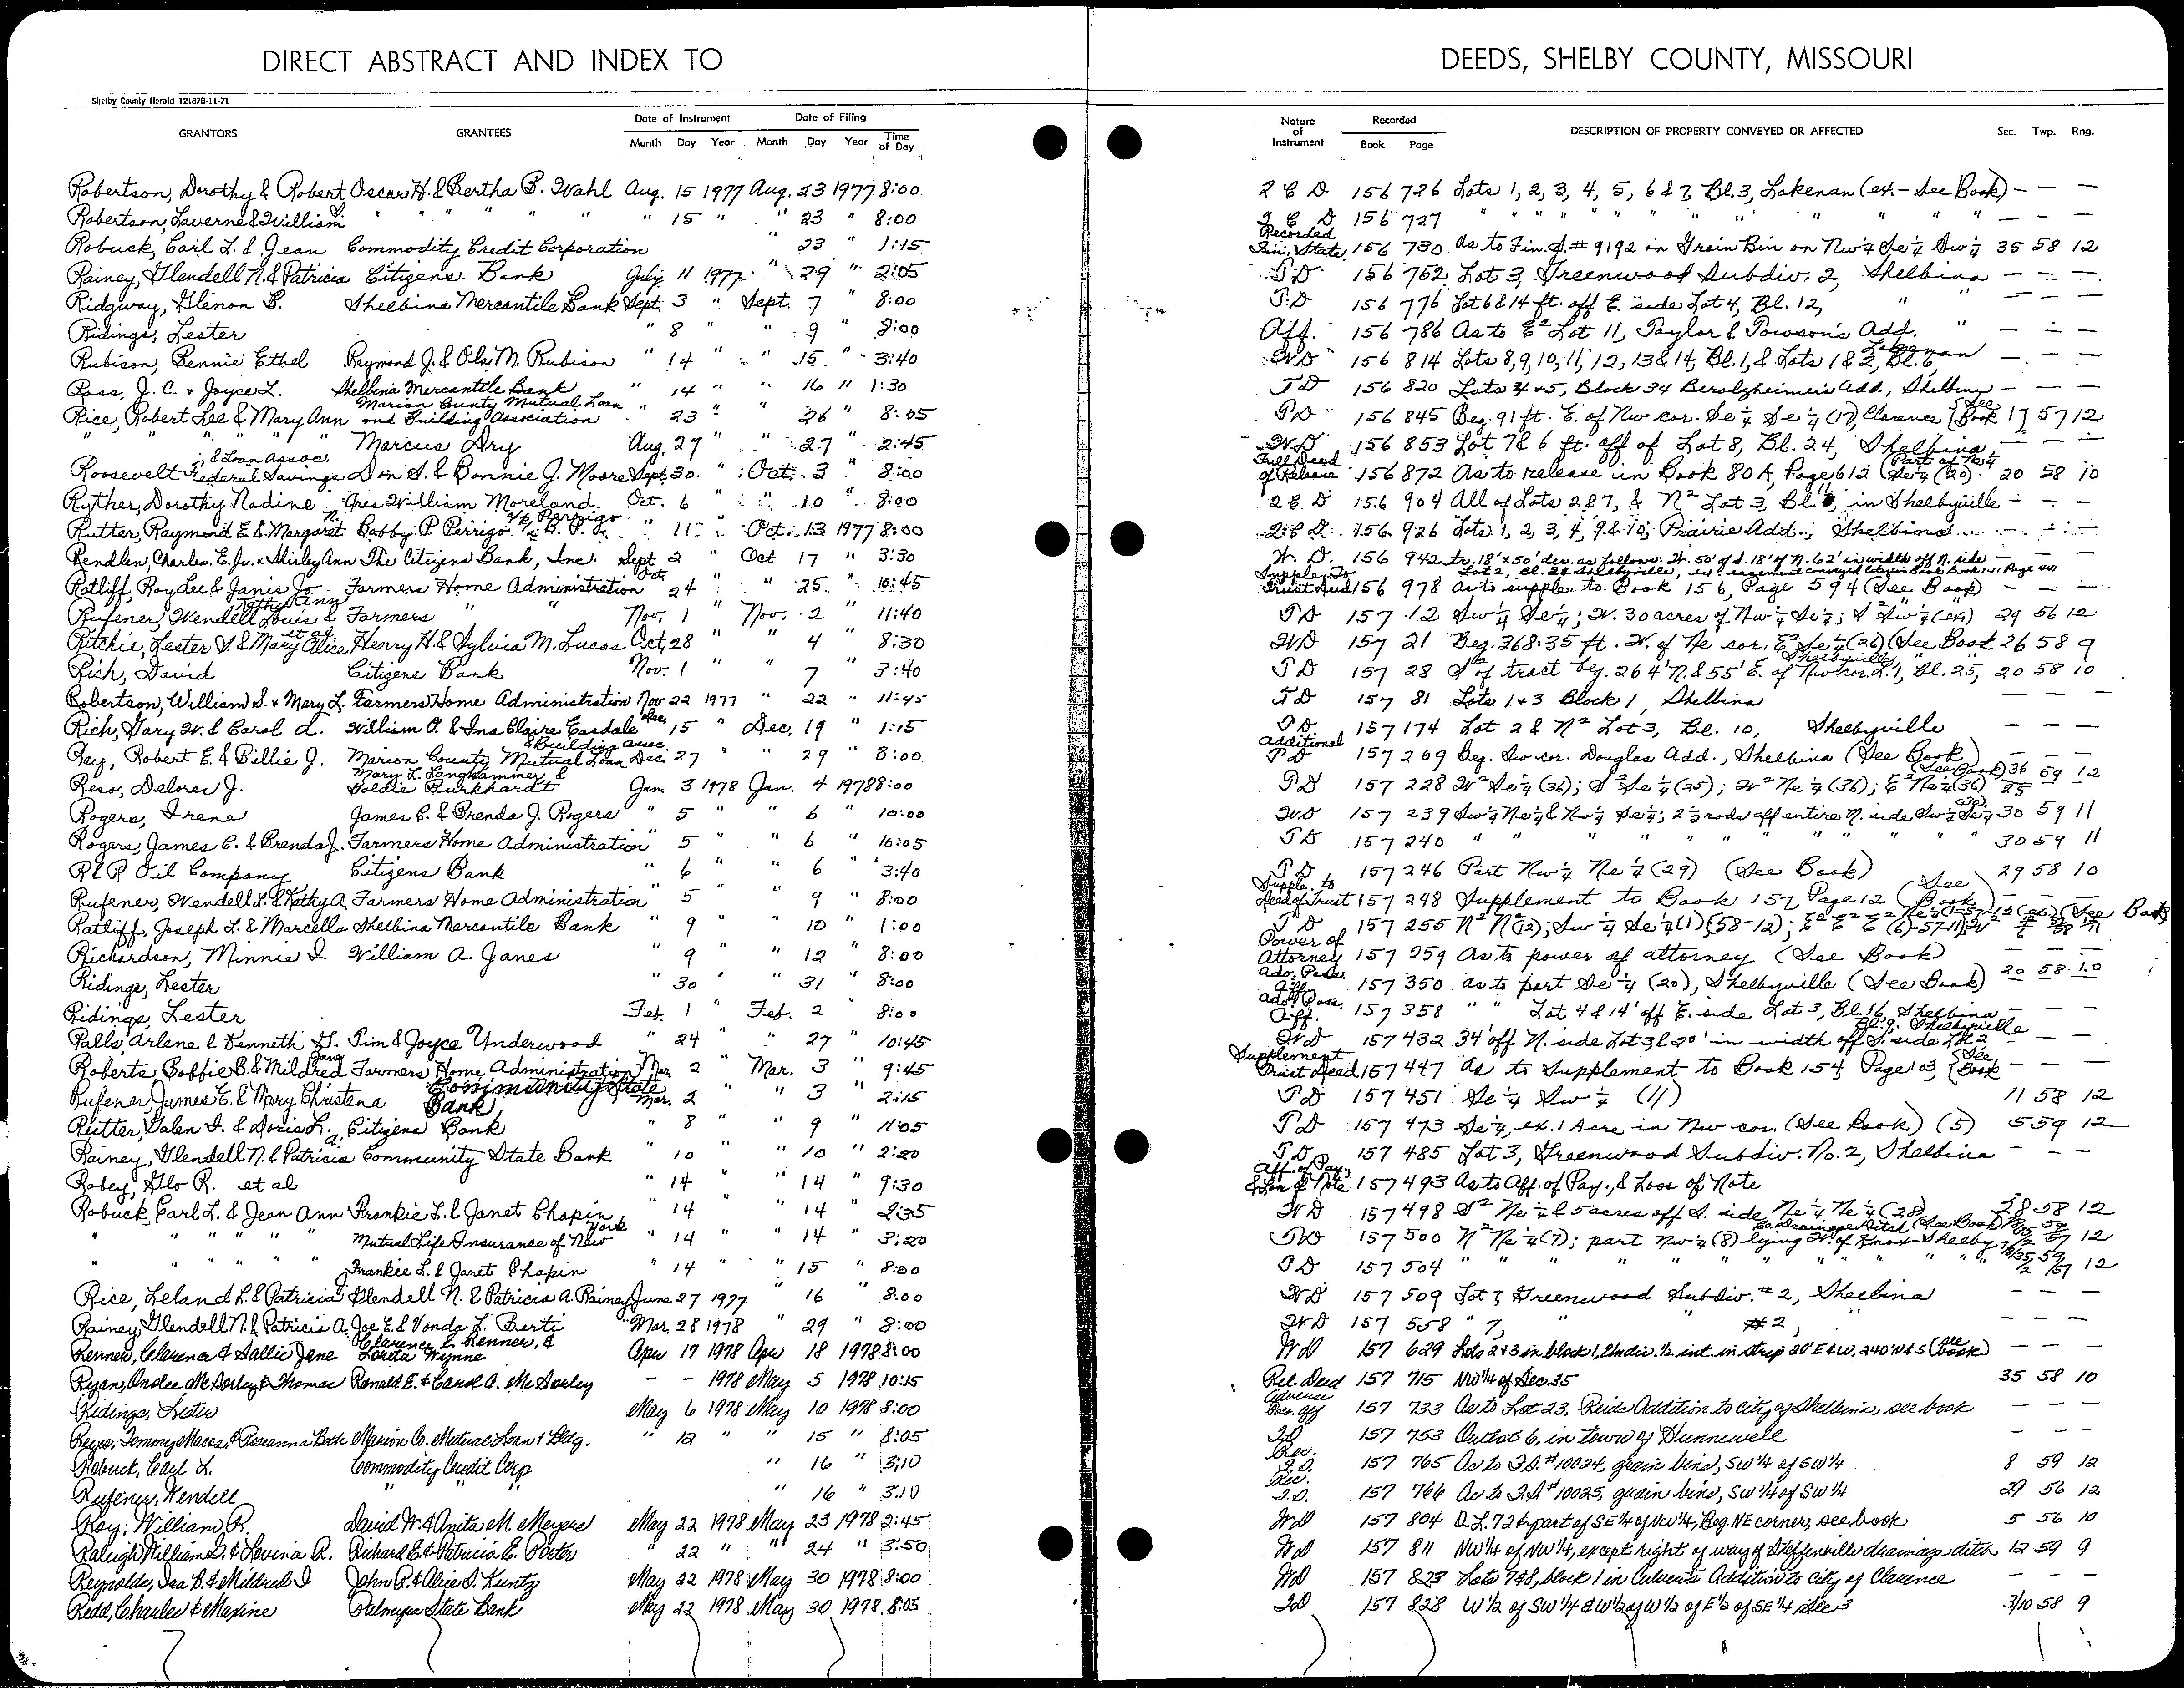 DIRECT ABSTRACT AND INDEX TO DEEDS, SHELBY COUNTY, MISSOURI
Shelby County Herald 121878-11-71
GRANTORS GRANTEES Date of Instrument Month Day Year Date of Filing Month Day Year Time of Day Nature of Instrument Recorded Book Page DESCRIPTION OF PROPERTY CONVEYED OR AFFECTED Sec. Twp. Rng.
Robertson, Dorothy & Robert Oscar H. & Bertha B. Wahl Aug. 15 1977 Aug. 23 1977 8:00 2 C D 156 726 Lots 1, 2, 3, 4, 5, 6 & 7, Bl. 3, Lakenan (ex. - See Book) — — —
Robertson, Laverne & William " " " " " " 15 " " 23 " 8:00 2 C D 156 727 " " " " " " " " " " " — — —
Robuck, Carl L. & Jean Commodity Credit Corporation " 23 " 1:15 Recorded Fin. State. 156 730 As to Fin. S. # 9192 on Grain Bin on Nw¼ Se¼ Sw¼ 35 58 12
Rainey, Glendell N. & Patricia Citizens Bank July 11 1977 " 29 " 2:05 T D 156 762 Lot 3, Greenwood Subdiv. 2, Shelbina — — —
Ridgway, Glenon B. Shelbina Mercantile Bank Sept. 3 " Sept. 7 " 8:00 T.D 156 776 Lot 6 & 14 ft. off E. side Lot 4, Bl. 12, " — — —
Ridings, Lester " 8 " " 9 " 8:00 Aff. 156 786 As to E² Lot 11, Taylor & Towson's Add. " — — —
Rubison, Bennie Ethel Raymond J. & Ola M. Rubison " 14 " " 15 " 3:40 WD 156 814 Lots 8, 9, 10, 11, 12, 13 & 14, Bl. 1, & Lots 1 & 2, Bl. 6, Lakenan — — —
Ross, J. C. & Joyce L. Shelbina Mercantile Bank " 14 " " 16 " 1:30 T D 156 820 Lots 4 & 5, Block 34 Berolzheimer's Add., Shelbina — — —
Rice, Robert Lee & Mary Ann Marion County Mutual Loan and Building Association " 23 " " 26 " 8:05 T D 156 845 Beg. 91 ft. E. of Nw cor. Se¼ Se¼ (17), Clarence (See Book 17 57 12
" " " " " Marcus Dry Aug. 27 " " 27 " 2:45 W.D 156 853 Lot 7 & 6 ft. off of Lot 8, Bl. 24, Shelbina — — —
Roosevelt Federal Savings & Loan Assoc. Don S. & Bonnie J. Moore Sept. 30 " Oct. 3 " 8:00 Full Deed of Release 156 872 As to release in Book 80A, Page 612 (Part of Ne¼ Se¼ (20) 20 58 10
Ryther, Dorothy Nadine Gres William Moreland Oct. 6 " " 10 " 8:00 2 C D 156 904 All of Lots 2 & 7, & N² Lot 3, Bl. in Shelbyville — — —
Rutter, Raymond E. & Margaret N. Bobby P. Perrigo Oct. 13 1977 8:00 2 C D 156 926 Lots 1, 2, 3, 4, 9 & 10, Prairie Add., Shelbina
Rendlen, Charles E. Jr. & Shirley Ann The Citizens Bank, Inc. Sept 2 " Oct 17 " 3:30 W. D. 156 942 tr. 18' x 50' des. as follows: W. 50' of S. 18' of N. 62' in width off N. side Lot 2, Shelbyville, ex. easement conveyed Citizens Bank Page 441 — — —
Ratliff, Roy Lee & Janis Jo Farmers Home Administration Oct. 24 " " 25 " 10:45 Supple. To Trust Deed 156 978 as to supple. to Book 156, Page 594 (See Book) — — —
Rufener, Wendell Louis & Kathy Ann Farmers " " Nov. 1 " Nov. 2 " 11:40 T D 157 12 Sw¼ Se¼; W. 30 acres of Nw¼ Se¼; S² Sw¼ (ex) 29 56 12
Ritchie, Lester V. & Mary Alice et al Henry H. & Sylvia M. Lucas Oct. 28 " " 4 " 8:30 WD 157 21 Beg. 368.35 ft. W. of Ne cor. E² Se¼ (26) (See Book 26 58 9
Rich, David Citizens Bank Nov. 1 " " 7 " 3:40 T D 157 28 S½ of tract beg. 264' N. & 55' E. of Nw cor. L. 1, Bl. 25, Shelbyville 20 58 10
Robertson, William S. & Mary L. Farmers Home Administration Nov 22 1977 " 22 " 11:45 T D 157 81 Lots 1 & 3 Block 1, Shelbina — — —
Rich, Gary W. & Carol A. William O. & Ina Claire Easdale Dec. 15 " Dec. 19 " 1:15 T D 157 174 Lot 2 & N² Lot 3, Bl. 10, Shelbyville — — —
Ray, Robert E. & Billie J. Marion County Mutual Loan & Building Assoc. Dec. 27 " " 29 " 8:00 Additional T D 157 209 Beg. Sw cor. Douglas Add., Shelbina (See Book) — — —
Reso, Delores J. Mary L. Langhammer & Goldie Burkhardt Jan. 3 1978 Jan. 4 1978 8:00 T D 157 228 W² Se¼ (36); S² Se¼ (25); W² Ne¼ (36); E² Ne¼ (36) (See Book) 36 25 59 12
Rogers, Irene James C. & Brenda J. Rogers " 5 " " 6 " 10:00 WD 157 239 Sw¼ Ne¼ & Nw¼ Se¼; 2½ rods off entire N. side Sw¼ Se¼ (30) 30 59 11
Rogers, James C. & Brenda J. Farmers Home Administration " 5 " " 6 " 10:05 T D 157 240 " " " " " " " " 30 59 11
R & R Oil Company Citizens Bank " 6 " " 6 " 3:40 T D 157 246 Part Nw¼ Ne¼ (29) (See Book) 29 58 10
Rufener, Wendell L. & Kathy A. Farmers Home Administration " 5 " " 9 " 8:00 Supple. to Deed of Trust 157 248 Supplement to Book 157 Page 12 (See Book) — — —
Ratliff, Joseph L. & Marcella Shelbina Mercantile Bank " 9 " " 10 " 1:00 T D 157 255 N² N² (12); Sw¼ Se¼ (1) (58-12); E² E² E² (6)-57-11); (See Book)
Richardson, Minnie I. William A. Janes " 9 " " 12 " 8:00 Power of Attorney 157 259 As to power of attorney (See Book) — — —
Ridings, Lester " 30 " " 31 " 8:00 Adv. Poss. Aff. 157 350 as to part Se¼ (20), Shelbyville (See Book) 20 58 10
Ridings, Lester Feb. 1 " Feb. 2 " 8:00 Adv. Poss. Aff. 157 358 " " Lot 4 & 14' off E. side Lot 3, Bl. 16, Shelbina — — —
Ralls, Arlene & Kenneth G. Tim & Joyce Underwood " 24 " " 27 " 10:45 WD 157 432 34' off N. side Lot 3, & 20' in width off S. side Lot 2 Bl. 9, Shelbyville — — —
Roberts, Boffie B. & Mildred Jane Farmers Home Administration Mar. 2 " Mar. 3 " 9:45 Supplement Trust Deed 157 447 As to Supplement to Book 154, Page 103, (See Book — — —
Rufener, James E. & Mary Christena Community State Bank Mar. 2 " " 3 " 2:15 T D 157 451 Se¼ Sw¼ (11) 11 58 12
Reitter, Galen I. & Doris L. Citizens Bank " 8 " " 9 " 11:05 T D 157 473 Se¼, ex. 1 Acre in Nw cor. (See Book) (5) 5 59 12
Rainey, Glendell N. & Patricia A. Community State Bank " 10 " " 10 " 2:20 T D 157 485 Lot 3, Greenwood Subdiv. No. 2, Shelbina — — —
Robey, Glo R. et al " 14 " " 14 " 9:30 Aff. of Pay. & Loss of Note 157 493 As to Aff. of Pay., & Loss of Note
Robuck, Earl L. & Jean Ann Frankie L. & Janet Chapin " 14 " " 14 " 2:35 WD 157 498 S² Ne¼ & 5 acres off S. side Ne¼ Ne¼ (28) 28 58 12
" " " " " Mutual Life Insurance of New York " 14 " " 14 " 3:20 T D 157 500 N² Ne¼ (7); part Nw¼ (8) lying W. of Knox-Shelby Co. Drainage Ditch (See Book) 12
" " " " " Frankie L. & Janet Chapin " 14 " " 15 " 8:00 T D 157 504 " " " " " " " " 12
Rice, Leland L. & Patricia Glendell N. & Patricia A. Rainey June 27 1977 " 16 " 8:00 WD 157 509 Lot 7, Greenwood Subdiv. # 2, Shelbina — — —
Rainey, Glendell N. & Patricia A. Joe E. & Vonda L. Berti Mar. 28 1978 " 29 " 8:00 WD 157 558 " 7, " #2, " — — —
Renner, Clarence & Sallie Jane Clarence L. Renner, & Loreta Wynne Apr 17 1978 Apr 18 1978 8:00 WD 157 629 Lots 2 & 3 in block 1, Undiv. ½ int. in strip 20' E & W, 240' N & S (see book) — — —
Ryan, Onslee McSorley & Thomas Ronald E. & Carol A. McSorley — — 1978 May 5 1978 10:15 Rel. Deed 157 715 NW¼ of Sec. 35 35 58 10
Ridings, Lester May 6 1978 May 10 1978 8:00 Adverse Poss. Aff 157 733 As to Lot 23, Reids Addition to city of Shelbina, see book — — —
Reyes, Tommy Maces & Roseanna Beth Marion Co. Mutual Loan & Bldg. " 12 " " 15 " 8:05 TD 157 753 Outlot 6, in town of Hunnewell — — —
Robuck, Carl L. Commodity Credit Corp " 16 " 3:10 Rec. F.S. 157 765 As to F.S. #10024, grain bins, SW¼ of SW¼ 8 59 12
Rufener, Wendell " " " " 16 " 3:10 Rec. F.S. 157 766 As to F.S. #10025, grain bins, SW¼ of SW¼ 29 56 12
Roy, William R. David W. & Anita M. Meyers May 22 1978 May 23 1978 2:45 WD 157 804 O.L. 72 & part of SE¼ of NW¼, Beg. NE corner, see book 5 56 10
Raleigh, William D. & Lovina R. Richard E. & Patricia E. Porter " 22 " " 24 " 3:50 WD 157 811 NW¼ of NW¼, except right of way of Steffenville drainage ditch 12 59 9
Reynolds, Ira B. & Mildred I John P. & Alice D. Kuntz May 22 1978 May 30 1978 8:00 WD 157 823 Lots 7 & 8, block 1 in Culver's Addition to city of Clarence — — —
Redd, Charles & Maxine Palmyra State Bank May 22 1978 May 30 1978 8:05 TD 157 828 W½ of SW¼ & W½ of W½ of E½ of SE¼, Sec 3 3/10 58 9